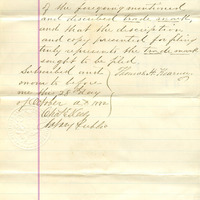 of the foregoing mentioned
and described trade mark,
and that the description
and copy presented for filing
truly represents the trade mark
sought to be filed.
Subscribed and
sworn to before Thomas H.
me this 28 day
of October A.D. 1882
Notary Public